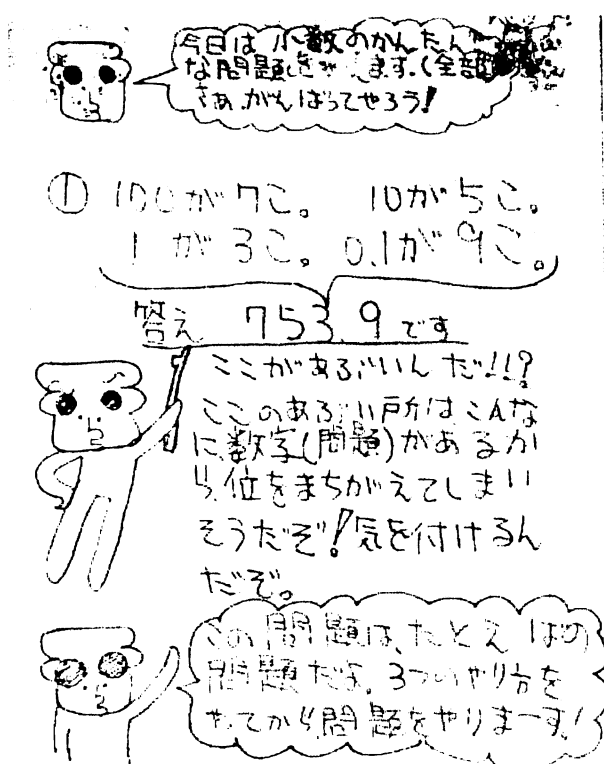 今日は小数のかんたん
な問題
さあ、がんばってやろう!
① 100が7こ。 10が5こ。
1が3こ。 0.1が9こ。
答え 753.9です
ここがあぶいんだ!!?
ここのあぶい所はこんな
に数字(問題)があるか
ら、位をまちがえてしまい
そうだぞ!気を付けるん
だぞ。
この問題は、たとえばの
問題だよ。3つのやり方を
やってから問題をやりまーす!